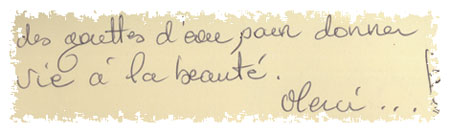 des gouttes d'eau pour donner
vie à la beauté.
Merci...